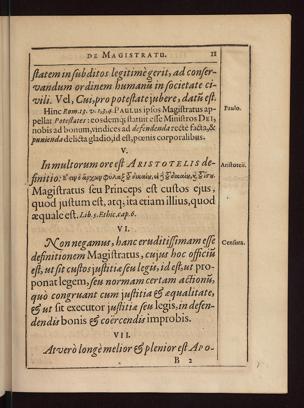 DE MAGISTRATU. 11
statem in subditos legitimè gerit, ad conser-
vandum ordinem humanū in societate ci-
vili. Vel, Cui, pro potestate jubere, datū est.
Hinc Rom. 13. v. 1. 3. 4. PAULUS ipsos Magistratus ap-
Paulo.
pellat Potestates: eosdemq; statuit esse Ministros DEI,
nobis ad bonum, vindices ad defendenda rectè facta, &
punienda delicta gladio, id est, pœnis corporalibus.
V.
In multorum ore est ARISTOTELIS de-
Aristoteli.
finitio:
Magistratus seu Princeps est custos ejus,
quod justum est, atq; ita etiam illius, quod
æquale est. Lib. 5. Ethic. cap. 6.
VI.
Non negamus, hanc eruditissimam esse
Censura.
definitionem Magistratus, cujus hoc officiū
est, ut sit custos justitiæ seu legis, id est, ut pro-
ponat legem, seu normam certam actionū,
quò congruant cum justitia & æqualitate,
& ut sit executor justitiæ seu legis, in defen-
dendis bonis & coërcendis improbis.
VII.
At verò longè melior & plenior est APO-
B 2